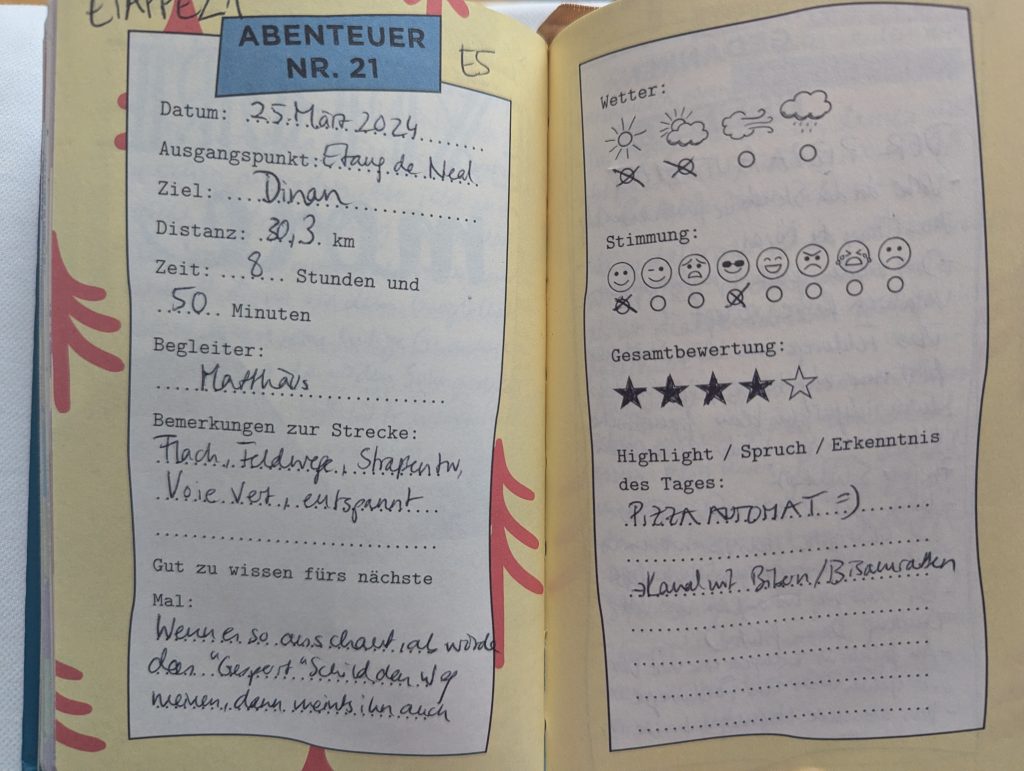 ETAPPE 21
ABENTEUER
NR. 21
E5
Datum: 25. März 2024
Ausgangspunkt: Etang de Neal
Ziel: Dinan
Distanz: 30,3 km
Zeit: 8 Stunden und
50 Minuten
Begleiter:
Matthäus
Bemerkungen zur Strecke:
Flach, Feldwege, Straßen tw,
Voie Vert, entspannt
Gut zu wissen fürs nächste
Mal:
Wenn es so ausschaut, als würde
das "Gesperrt" Schild den Weg
meinen, dann meints ihn auch
Wetter:
Stimmung:
Gesamtbewertung:
Highlight / Spruch / Erkenntnis
des Tages:
PIZZA AUTOMAT =)
→ Kanal mit Bibern/Bisamratten